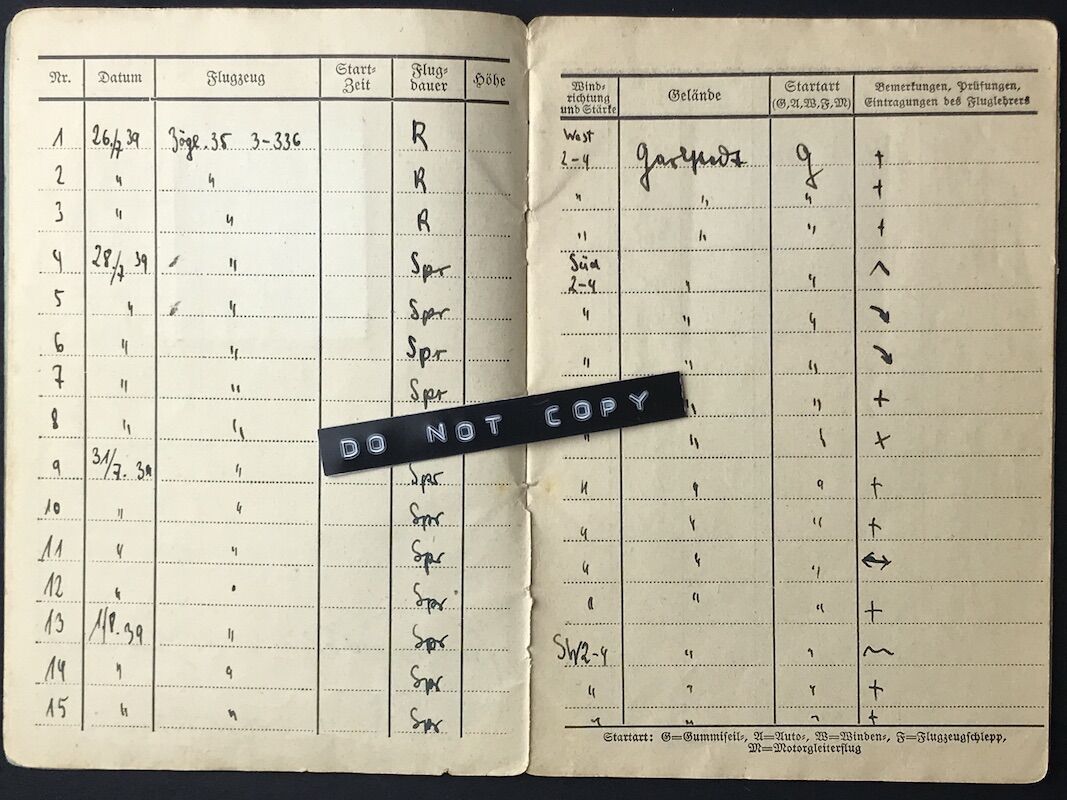 Nr. Datum Flugzeug Start-Zeit Flug-dauer Höhe
1 26/7 39 Zögl. 35 3-336 R
2 " " R
3 " " R
4 28/7 39 " Spr
5 " " Spr
6 " " Spr
7 " " Spr
8 " "
9 31/7. 39 " Spr
10 " " Spr
11 " " Spr
12 " " Spr
13 1/8. 39 " Spr
14 " " Spr
15 " " Spr
DO NOT COPY
Wind-richtung und Stärke Gelände Startart (G,A,W,F,M) Bemerkungen, Prüfungen, Eintragungen des Fluglehrers
West
2-4 Garlstedt G +
" " " +
" " " +
Süd
2-4 " " ^
" " " ↘
" " " ↘
" " +
" " " x
" " " +
" " " +
" " " ↔
" " " +
SW 2-4 " " ~
" " " +
" " " +
Startart: G=Gummiseil-, A=Auto-, W=Winden-, F=Flugzeugschlepp,
M=Motorgleiterflug